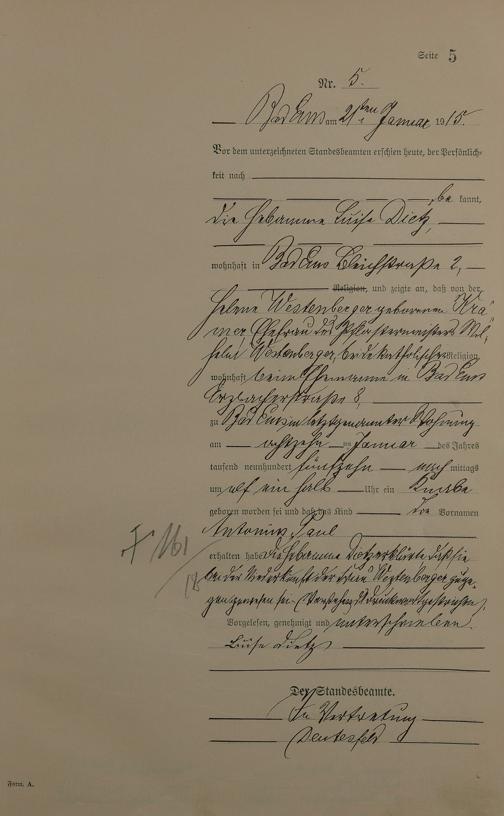 Seite 5
Nr. 5.
Bad Ems am 21ten Januar 1915.
Vor dem unterzeichneten Standesbeamten erschien heute, der Persönlich-
keit nach
be kannt,
die Hebamme Luise Dietz,
wohnhaft in Bad Ems Bleichstraße 2,
Religion, und zeigte an, daß von der
Helene Westenberger geborenen Krä-
mer Ehefrau des Pflastermeisters Wil-
helm Westenberger, beide katholischer Religion
wohnhaft beim Ehemanne in Bad Ems
Arzbacherstraße 8,
zu Bad Ems in letztgenannter Wohnung
am achtzehn ten Januar des Jahres
tausend neunhundert fünfzehn nach mittags
um elf ein halb Uhr ein Knabe
geboren worden sei und daß das Kind die Vornamen
Antonius Paul
erhalten habe. Die Hebamme Dietz erklärte daß sie
bei der Niederkunft der Frau Westenberger zuge-
gen gewesen sei. (Vorstehend Druckwort gestrichen).
Vorgelesen, genehmigt und unterschrieben.
Luise Dietz
Der Standesbeamte.
In Vertretung
F 161
18
Form. A.